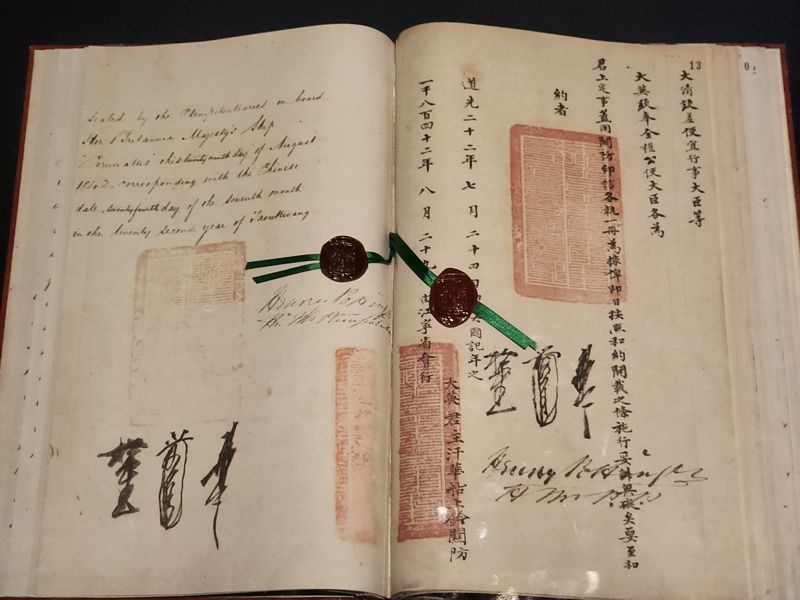 Sealed by the Plenipotentiaries on board
Her Britannic Majesty's Ship
"Cornwallis" this twenty ninth day of August
1842. corresponding with the Chinese
date, twenty fourth day of the seventh month
in the twenty second year of Taou Kwang
Henry Pottinger
13
大清欽差便宜行事大臣等
大英欽奉全權公使大臣各為
君上定事蓋用關防印信各執一冊為據俾即日按照和約開載之條施行妥辦無礙矣要至和
約者
道光二十二年七月二十四日英國記年之
一千八百四十二年八月二十九日由江寧省會行
大英君主汗華船上鈐關防
Henry Pottinger